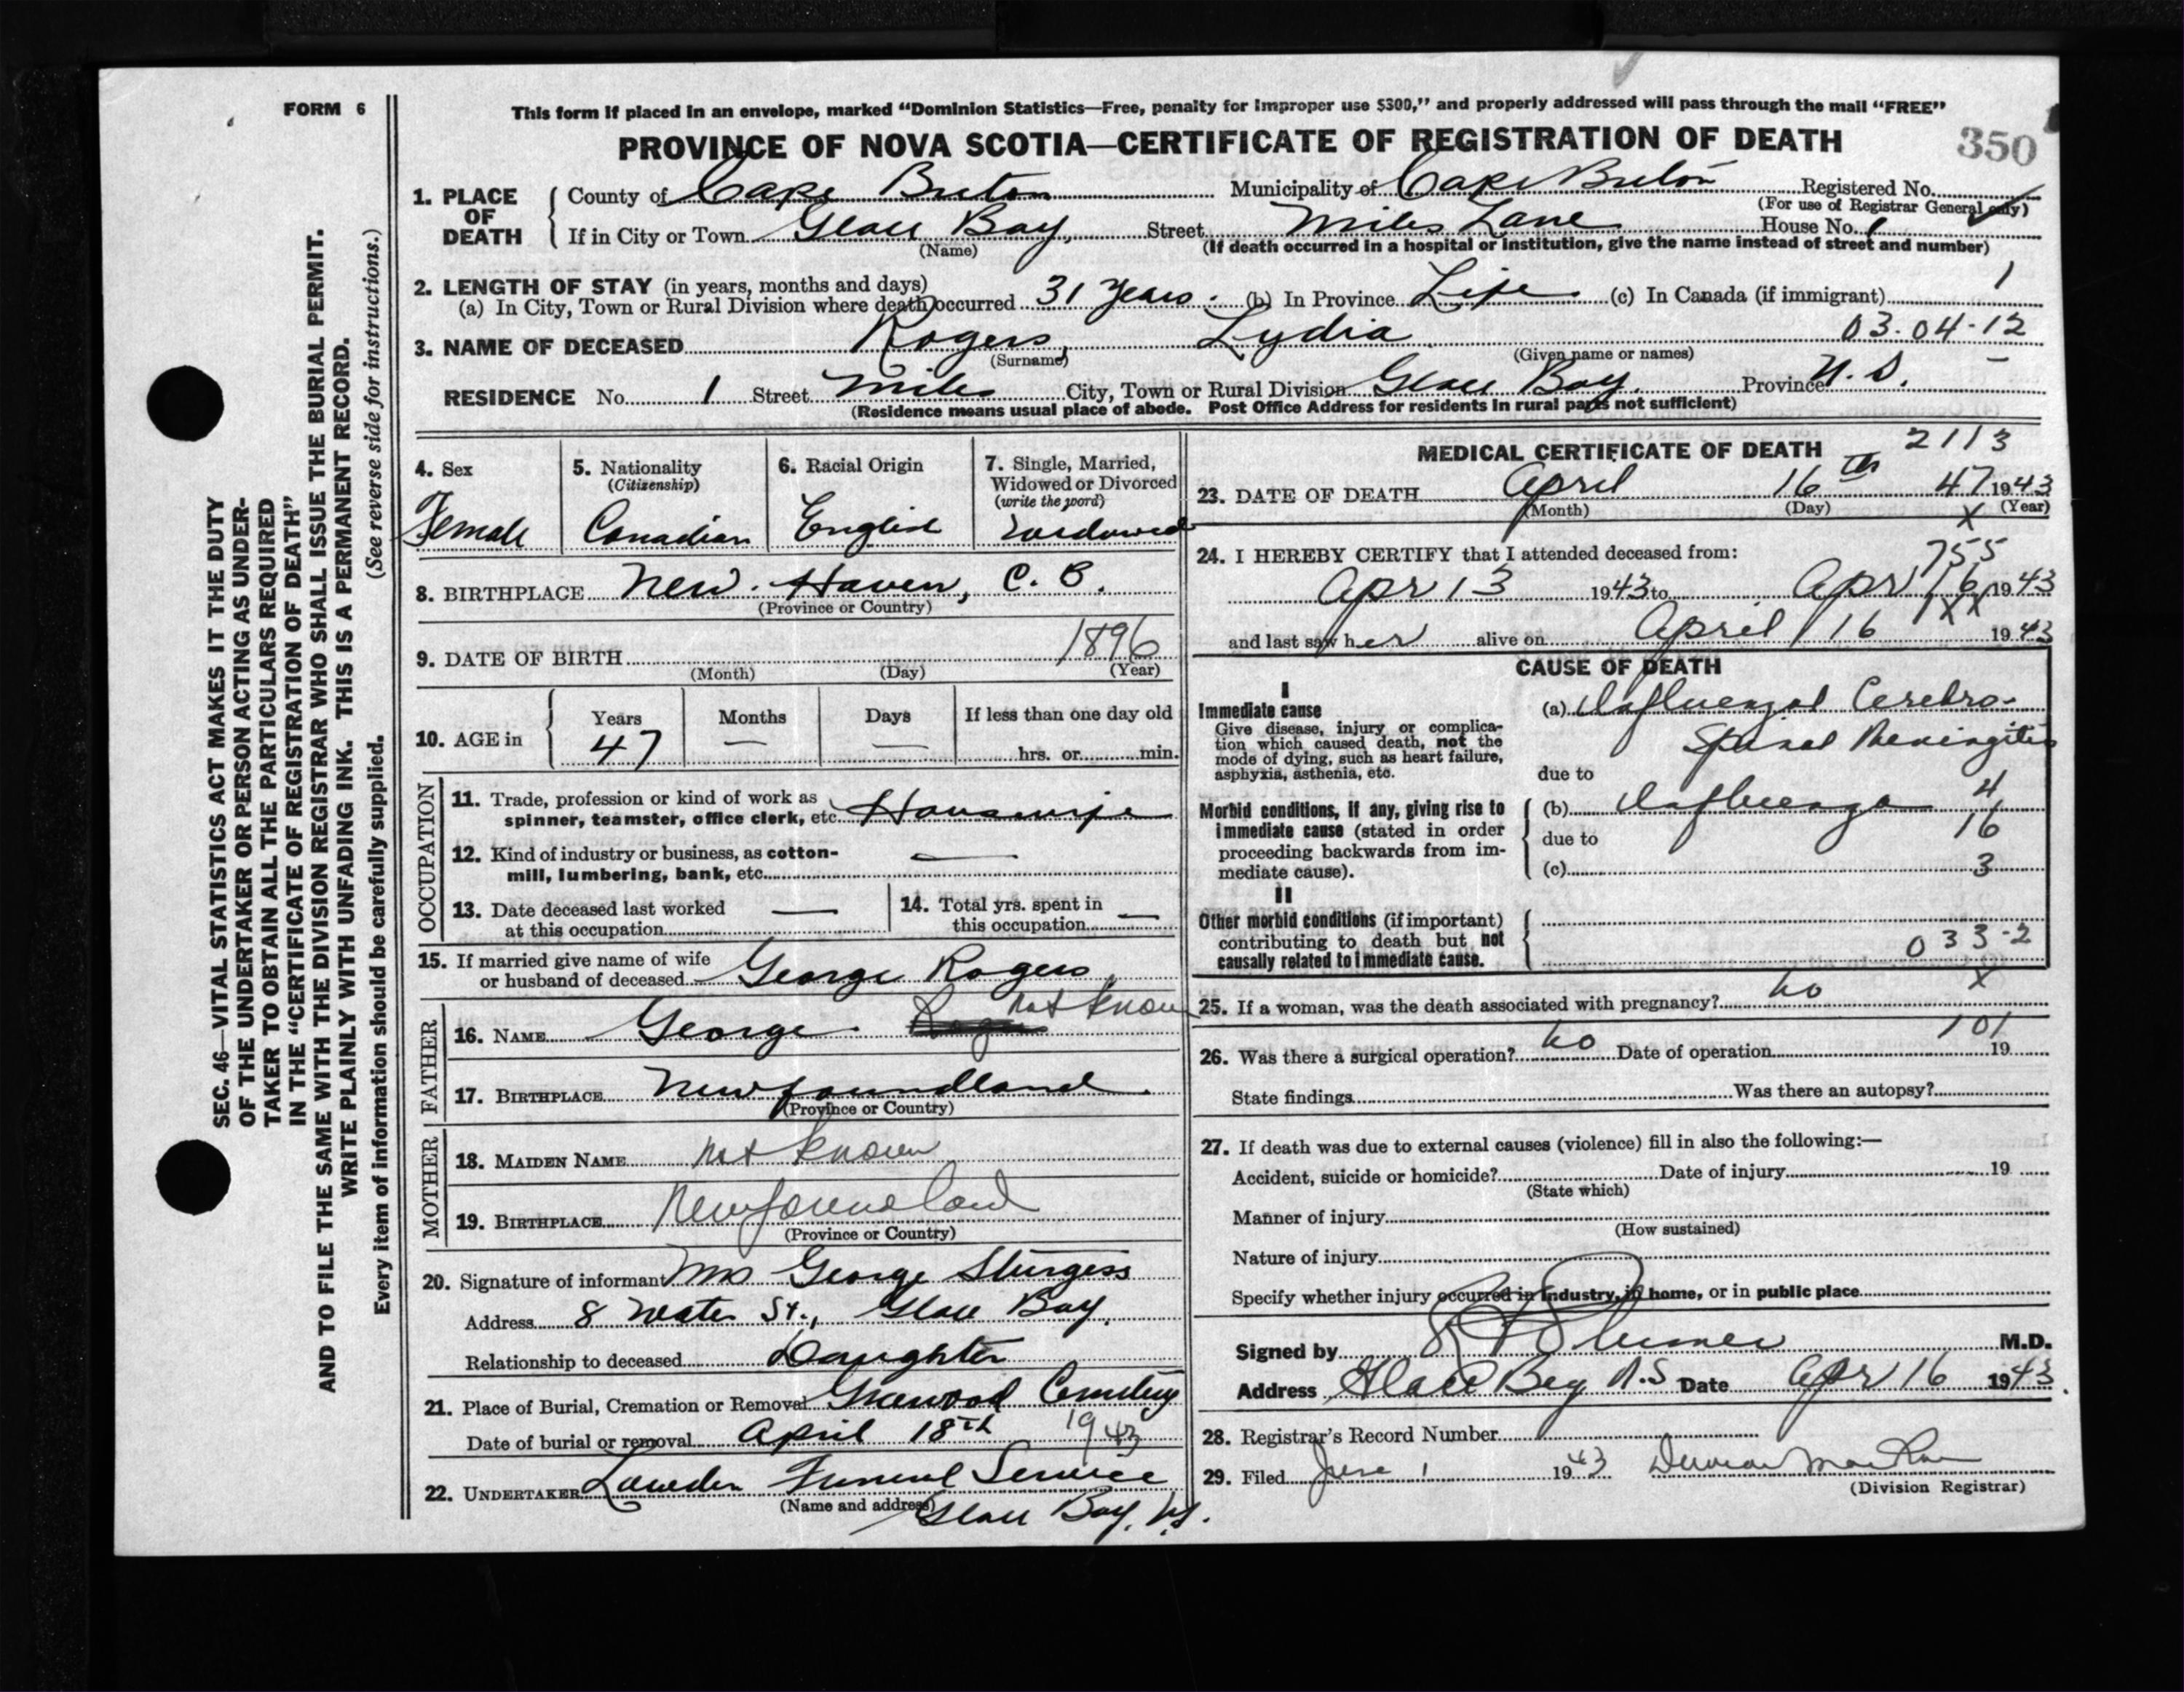 FORM 6
This form if placed in an envelope, marked "Dominion Statistics—Free, penalty for improper use $300," and properly addressed will pass through the mail "FREE"
PROVINCE OF NOVA SCOTIA—CERTIFICATE OF REGISTRATION OF DEATH
350
1. PLACE OF DEATH County of Cape Breton Municipality of Cape Breton Registered No.
(For use of Registrar General only)
If in City or Town Glace Bay, Street Miles Lane House No. 1
(Name) (If death occurred in a hospital or institution, give the name instead of street and number)
2. LENGTH OF STAY (in years, months and days) 1
(a) In City, Town or Rural Division where death occurred 31 years. (b) In Province Life (c) In Canada (if immigrant)
03-04-12
3. NAME OF DECEASED Rogers, Lydia
(Surname) (Given name or names)
RESIDENCE No. 1 Street Miles City, Town or Rural Division Glace Bay. Province N.S. –
(Residence means usual place of abode. Post Office Address for residents in rural parts not sufficient)
4. Sex
Female
5. Nationality
(Citizenship)
Canadian
6. Racial Origin
English
7. Single, Married,
Widowed or Divorced
(write the word)
Widowed
8. BIRTHPLACE New. Haven, C. B.
(Province or Country)
9. DATE OF BIRTH 1896
(Month) (Day) (Year)
10. AGE in Years Months Days If less than one day old
47 — — hrs. or min.
OCCUPATION
11. Trade, profession or kind of work as
spinner, teamster, office clerk, etc. Housewife
12. Kind of industry or business, as cotton-
mill, lumbering, bank, etc. —
13. Date deceased last worked
at this occupation —
14. Total yrs. spent in
this occupation —
15. If married give name of wife
or husband of deceased George Rogers
FATHER
16. NAME George. not known
17. BIRTHPLACE Newfoundland.
(Province or Country)
MOTHER
18. MAIDEN NAME not known
19. BIRTHPLACE Newfoundland
(Province or Country)
20. Signature of informant Mrs George Sturgess
Address 8 Water St., Glace Bay.
Relationship to deceased Daughter
21. Place of Burial, Cremation or Removal Greenwood Cemetery
Date of burial or removal April 18th 1943
22. UNDERTAKER Lowden Funeral Service
(Name and address) Glace Bay, N.S.
MEDICAL CERTIFICATE OF DEATH 2113
23. DATE OF DEATH April 16th 47 1943
(Month) (Day) X (Year)
24. I HEREBY CERTIFY that I attended deceased from: 755
Apr 13 1943 to Apr 16 1943
1XX
and last saw her alive on April 16 1943
CAUSE OF DEATH
I
Immediate cause
Give disease, injury or complica-
tion which caused death, not the
mode of dying, such as heart failure,
asphyxia, asthenia, etc.
(a) Influenzal Cerebro-
Spinal Meningitis
due to
Morbid conditions, if any, giving rise to
immediate cause (stated in order
proceeding backwards from im-
mediate cause).
(b) Influenza 4
due to 16
(c) 3
II
Other morbid conditions (if important)
contributing to death but not
causally related to immediate cause.
033-2
25. If a woman, was the death associated with pregnancy? no X
101
26. Was there a surgical operation? no Date of operation 19
State findings Was there an autopsy?
27. If death was due to external causes (violence) fill in also the following:—
Accident, suicide or homicide? Date of injury 19
(State which)
Manner of injury
(How sustained)
Nature of injury
Specify whether injury occurred in industry, in home, or in public place
Signed by M.D.
Address Glace Bay N.S Date Apr 16 1943.
28. Registrar's Record Number
29. Filed June 1 1943
(Division Registrar)
SEC. 46—VITAL STATISTICS ACT MAKES IT THE DUTY
OF THE UNDERTAKER OR PERSON ACTING AS UNDER-
TAKER TO OBTAIN ALL THE PARTICULARS REQUIRED
IN THE "CERTIFICATE OF REGISTRATION OF DEATH"
AND TO FILE THE SAME WITH THE DIVISION REGISTRAR WHO SHALL ISSUE THE BURIAL PERMIT.
WRITE PLAINLY WITH UNFADING INK. THIS IS A PERMANENT RECORD.
Every item of information should be carefully supplied. (See reverse side for instructions.)